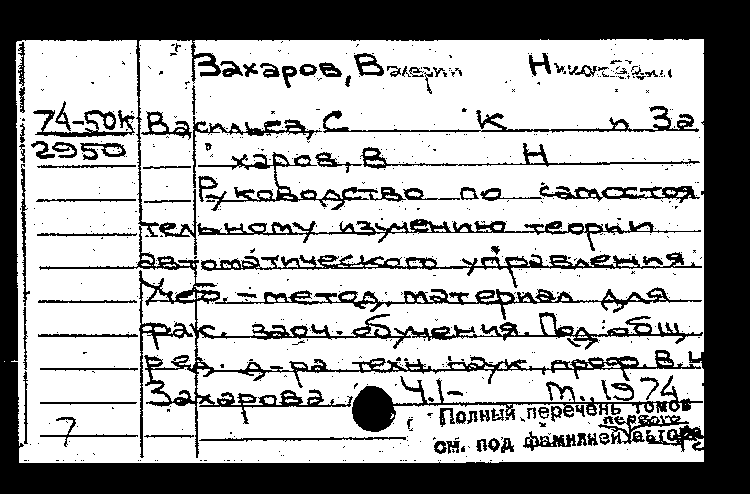 Захаров, Валерий Николаевич
74-50к Васильев, С К и За-
2950 харов, В Н
Руководство по самостоя-
тельному изучению теории
автоматического управления.
Учеб.-метод. материал для
фак. заоч. обучения. Под общ.
ред. д-ра техн. наук, проф. В.Н
Захарова. Ч.1- М., 1974
Полный перечень томов
первого
7 см. под фамилией автора